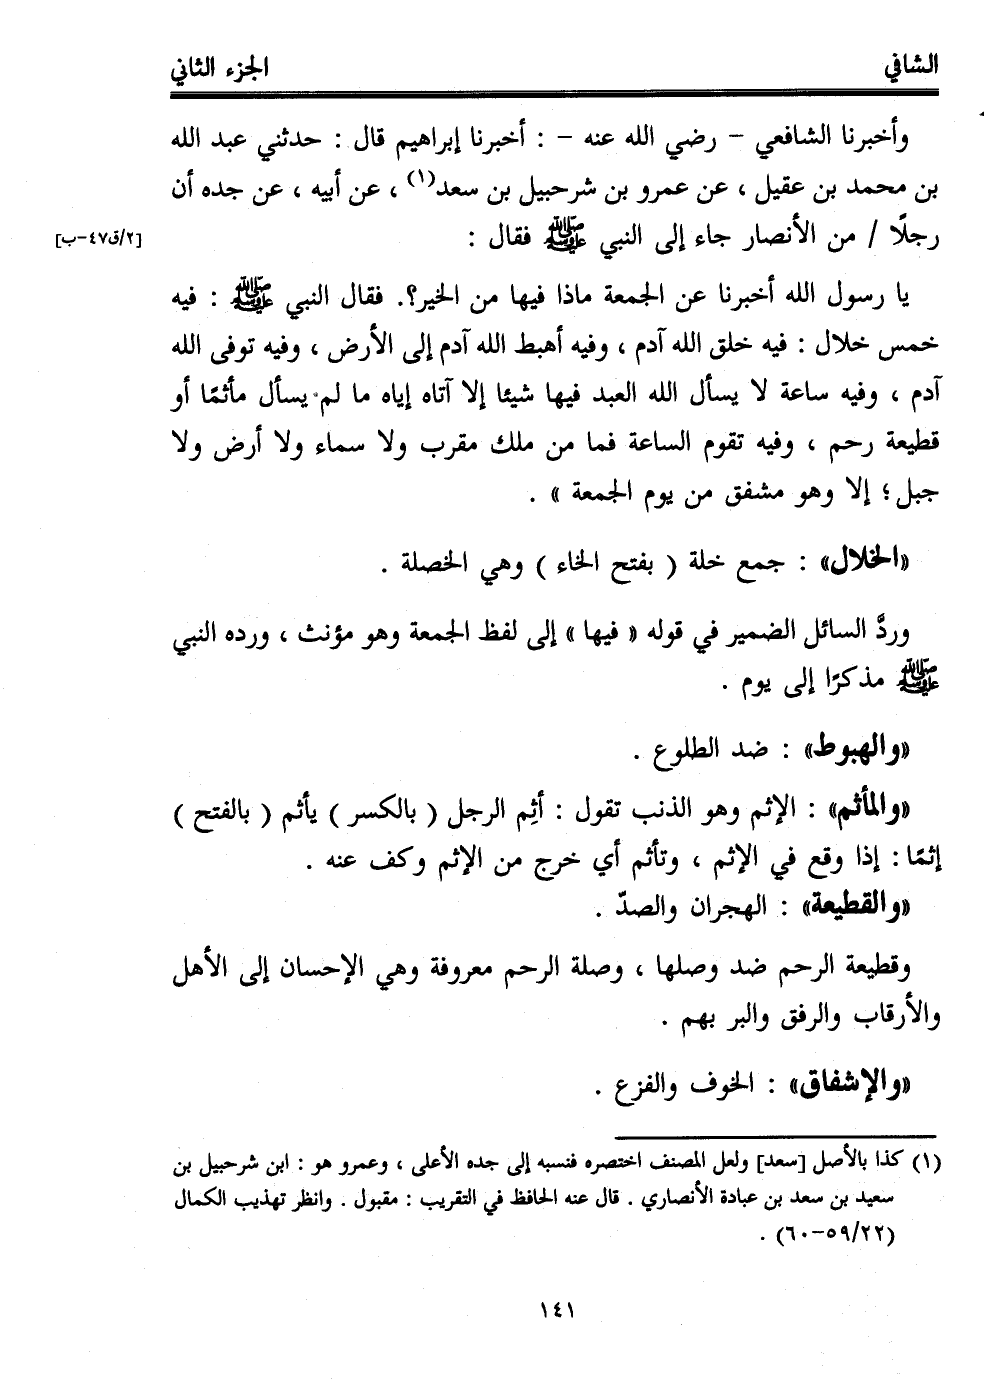 الشافي الجزء الثاني
وأخبرنا الشافعي – رضي الله عنه – : أخبرنا إبراهيم قال : حدثني عبد الله
بن محمد بن عقيل ، عن عمرو بن شرحبيل بن سعد(١) ، عن أبيه ، عن جده أن
رجلًا / من الأنصار جاء إلى النبي ﷺ فقال :
[٢/ق٤٧-ب]
يا رسول الله أخبرنا عن الجمعة ماذا فيها من الخير؟. فقال النبي ﷺ : فيه
خمس خلال : فيه خلق الله آدم ، وفيه أهبط الله آدم إلى الأرض ، وفيه توفى الله
آدم ، وفيه ساعة لا يسأل الله العبد فيها شيئا إلا آتاه إياه ما لم يسأل مأثمًا أو
قطيعة رحم ، وفيه تقوم الساعة فما من ملك مقرب ولا سماء ولا أرض ولا
جبل ؛ إلا وهو مشفق من يوم الجمعة » .
«الخلال» : جمع خلة ( بفتح الخاء ) وهي الخصلة .
وردَّ السائل الضمير في قوله « فيها » إلى لفظ الجمعة وهو مؤنث ، ورده النبي
ﷺ مذكرًا إلى يوم .
«والهبوط» : ضد الطلوع .
«والمأثم» : الإثم وهو الذنب تقول : أثِم الرجل ( بالكسر ) يأثم ( بالفتح )
إثمًا : إذا وقع في الإثم ، وتأثم أي خرج من الإثم وكف عنه .
«والقطيعة» : الهجران والصدّ .
وقطيعة الرحم ضد وصلها ، وصلة الرحم معروفة وهي الإحسان إلى الأهل
والأرقاب والرفق والبر بهم .
«والإشفاق» : الخوف والفزع .
(١) كذا بالأصل [سعد] ولعل المصنف اختصره فنسبه إلى جده الأعلى ، وعمرو هو : ابن شرحبيل بن
سعيد بن سعد بن عبادة الأنصاري . قال عنه الحافظ في التقريب : مقبول . وانظر تهذيب الكمال
(٢٢/٥٩-٦٠) .
١٤١